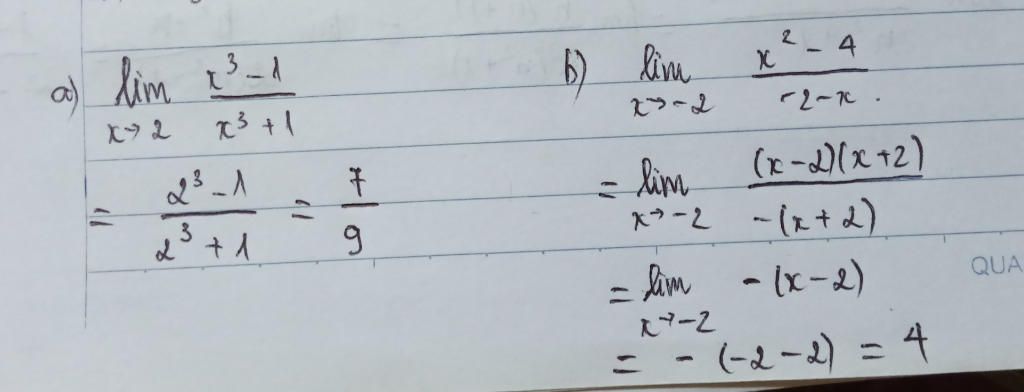 a) lim x→2 (x³ - 1)/(x³ + 1)
= (2³ - 1)/(2³ + 1) = 7/9
b) lim x→-2 (x² - 4)/(-2-x).
= lim x→-2 (x-2)(x+2)/-(x+2)
= lim x→-2 -(x-2)
= -(-2-2) = 4
QUA